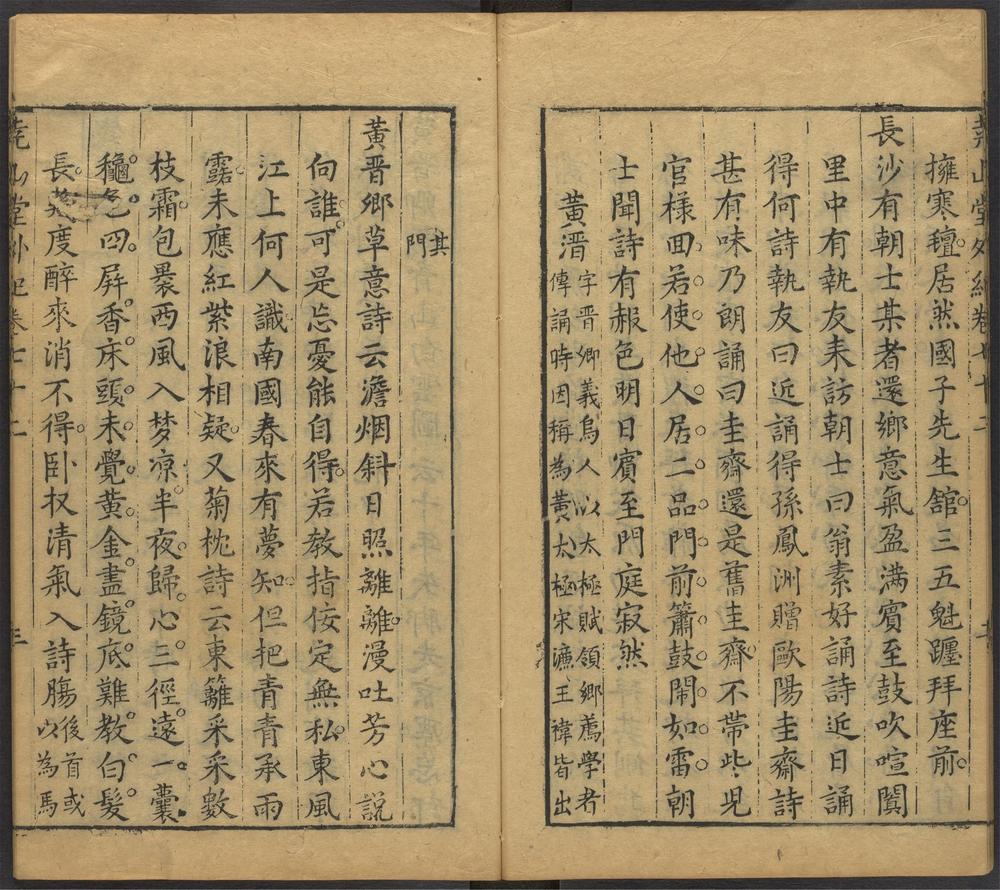 堯山堂外紀卷七十二
擁寒氊居然國子先生舘三五魁躔拜座前
長沙有朝士某者還鄉意氣盈満賓至鼓吹喧闐
里中有執友耒訪朝士曰翁素好誦詩近日誦
得何詩執友曰近誦得孫鳳洲贈歐陽圭齋詩
甚有味乃朗誦曰圭齋還是舊圭齋不带些児
官様囬若使他人居二品門前簫鼓鬧如雷朝
士聞詩有赧色明日賓至門庭寂然
黄溍
字晋卿義烏人以太極賦領鄉薦學者
傳誦時因稱為黄太極宋濂王禕皆出
其
門
黄晋卿草意詩云澹烟斜日照離離漫吐芳心説
向誰可是忘憂能自得若教指佞定無私東風
江上何人識南國春來有夢知但把青青承雨
露未應紅紫浪相疑又菊枕詩云東籬采采數
枝霜包裹西風入梦凉半夜歸心三徑遠一囊
秋色四屏香床頭未覺黄金盡鏡底難教白髮
長幾度醉來消不得卧收清氣入詩腸
後首或
以為馬
堯山堂外紀卷七十二
三